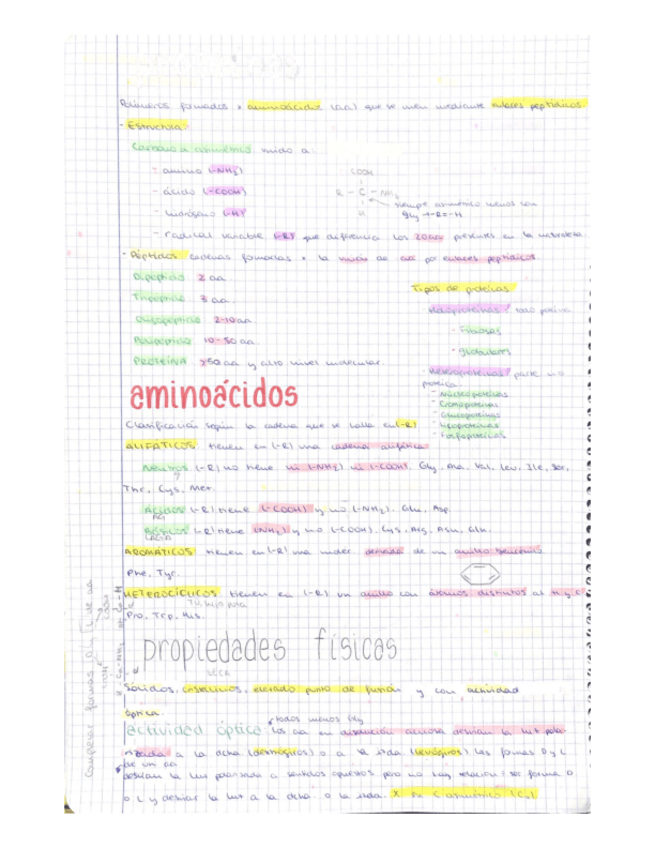 Polímeros formados x aminoácidos (aa) que se unen mediante enlaces peptídicos
- Estructura:
Carbono α asimétrico unido a:
- amino (-NH₂)
- ácido (-COOH)
- hidrógeno (-H)
- radical variable (-R) que diferencia los 20 aa presentes en la naturaleza.
COOH
R - C - NH₂
H
siempre asimétrico menos con
Gly → R = -H
- Péptidos cadenas formadas x la unión de aa por enlaces peptídicos
Dipéptido 2 aa.
Tripéptido 3 aa.
Oligopéptido 2-10 aa.
Polipéptido 10-50 aa.
PROTEÍNA >50 aa y alto nivel molecular.
Tipos de proteínas
- Holoproteínas: todo proteína
- Fibrosas
- globulares
- Heteroproteínas: parte no
proteica:
- Nucleoproteínas
- Cromoproteínas
- Glucoproteínas
- Lipoproteínas
- Fosfoproteínas
aminoácidos
Clasificación según la cadena que se halla en (-R)
ALIFÁTICOS: tienen en (-R) una cadena alifática
Neutros (-R) no tiene ni (-NH₂) ni (-COOH). Gly, Ala, Val, Leu, Ile, Ser,
Thr, Cys, Met.
Ácidos (-R) tiene (-COOH) y no (-NH₂). Glu, Asp.
AG
Básicos (-R) tiene (-NH₂) y no (-COOH). Lys, Arg, Asn, Gln.
LAGA
AROMÁTICOS: tienen en (-R) una derivada de un anillo bencénico
Phe, Tyr.
HETEROCÍCLICOS: tienen en (-R) un anillo con átomos distintos al H y C.
Pro, Trp, His.
propiedades físicas
Sólidos, cristalinos, elevado punto de fusión y con actividad
óptica.
todos menos Gly
actividad óptica: los aa en disolución acuosa desvían la luz pola-
rizada a la dcha (dextrógiros) o a la izda (levógiros) las formas D y L
de un aa
desvían la luz polarizada a sentidos opuestos pero no hay relación / ser forma D
o L y desviar la luz a la dcha. o la izda. X su C asimétrico (Cα).
Comparar formas D L de aa